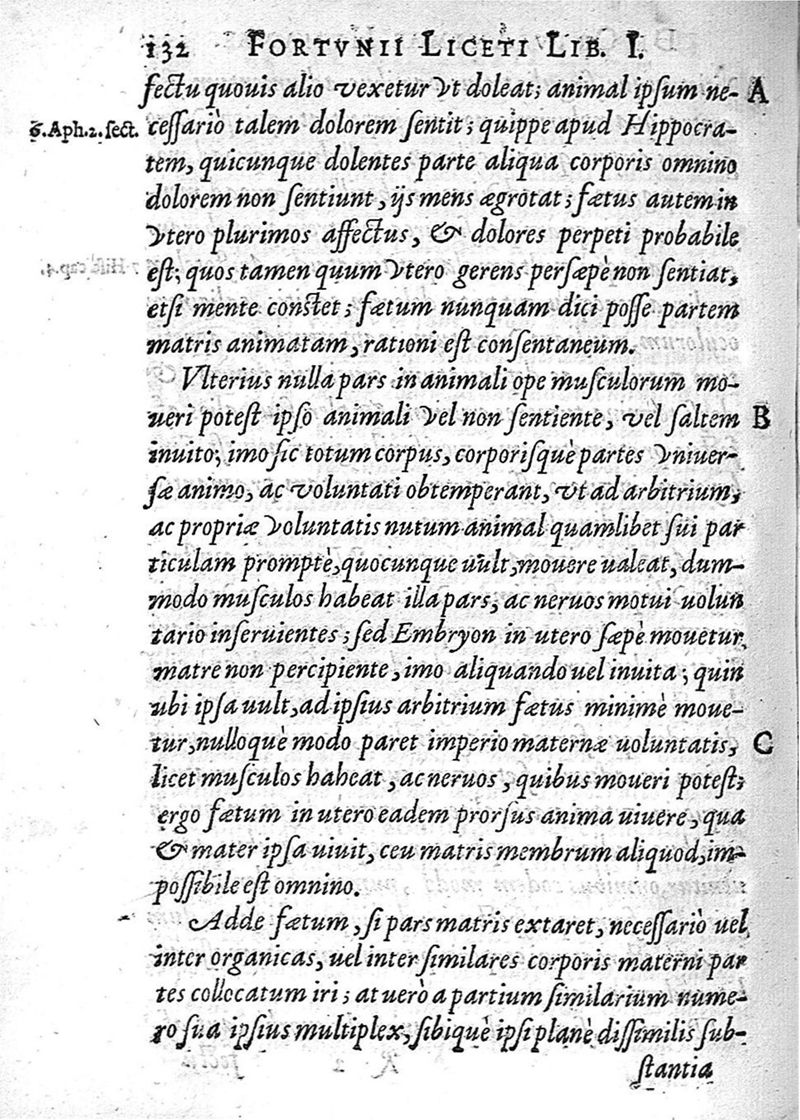 132 FORTVNII LICETI LIB. I.
fectu quouis alio vexetur vt doleat; animal ipsum ne- A
6. Aph. 2. sect. cessariò talem dolorem sentit; quippe apud Hippocra-
tem, quicunque dolentes parte aliqua corporis omnino
dolorem non sentiunt, ijs mens ægrotat; fætus autem in
vtero plurimos affectus, & dolores perpeti probabile
est; quos tamen quum vtero gerens persæpè non sentiat,
etsi mente constet; fætum nunquam dici posse partem
matris animatam, rationi est consentaneum.
Vlterius nulla pars in animali ope musculorum mo-
ueri potest ipso animali vel non sentiente, vel saltem B
inuito; imo sic totum corpus, corporisquè partes vniuer-
sæ animo, ac voluntati obtemperant, vt ad arbitrium,
ac propriæ voluntatis nutum animal quamlibet sui par
ticulam promptè, quocunque uult, mouere ualeat, dum-
modo musculos habeat illa pars, ac neruos motui uolun
tario inseruientes; sed Embryon in utero sæpè mouetur,
matre non percipiente, imo aliquando uel inuita; quin
ubi ipsa uult, ad ipsius arbitrium fætus minimè moue-
tur, nulloquè modo paret imperio maternæ uoluntatis, C
licet musculos habeat, ac neruos, quibus moueri potest;
ergo fætum in utero eadem prorsus anima uiuere, qua
& mater ipsa uiuit, ceu matris membrum aliquod, im-
possibile est omnino.
Adde fætum, si pars matris extaret, necessariò uel
inter organicas, uel inter similares corporis materni par
tes collocatum iri; at uerò a partium similarium nume-
ro sua ipsius multiplex, sibiquè ipsi planè dissimilis sub-
stantia